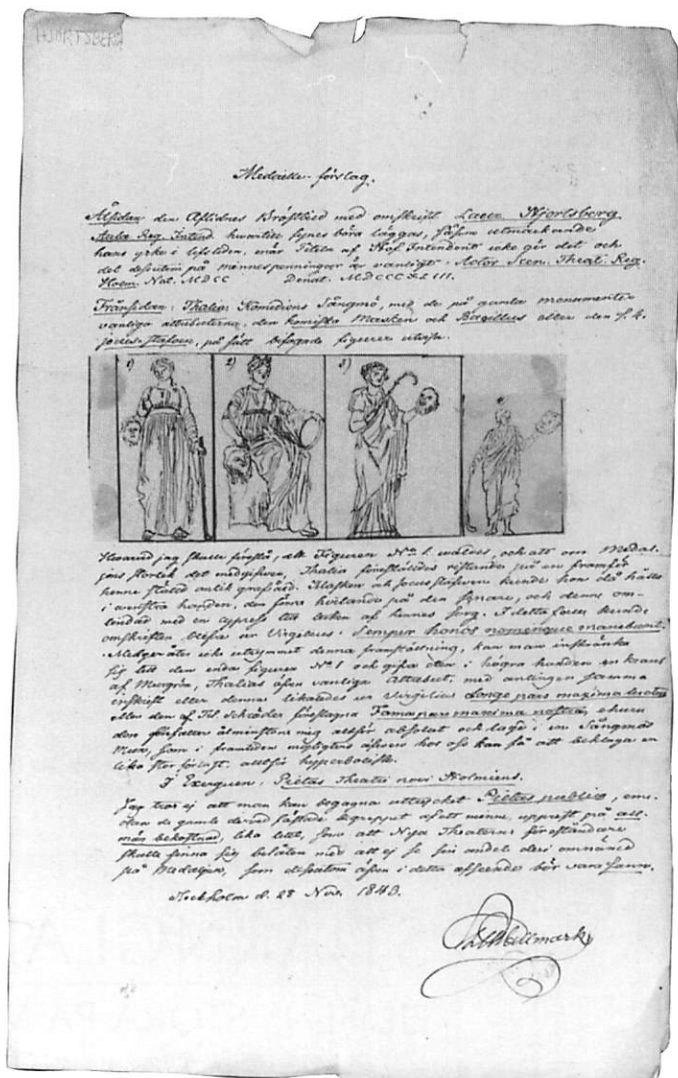 HJORTSBERG
Medaille-förslag.
Åtsidan den Aflidnes Bröstbild med omskrift Laur. Hjortsberg
Aulæ Reg. Intend. hvartill synes böra läggas, såsom utmärkande
hans yrke i lifstiden, enär Titeln af Hof Intendent icke gör det och
det dessutom på minnespenningar är vanligt: Actor Scen. Theat. Reg.
Holm. Nat. MDCC Denat. MDCCCXLIII.
Frånsidan: Thalia, Komediens Sångmö, med de på gamla monumenter
vanliga attributerna, den komiska Masken och Bacillus eller den s. k.
på sätt bifogade figurer utvisa.
1) 2) 3)
Hvarvid jag skulle föreslå, att Figuren No 1. valdes, och att om Medal-
jens storlek det medgifver, Thalia föreställdes vid en framför
henne ställd antik grafvård. Masken och kunde hon då hålla
i venstra handen, den förra hvilande på den , och denne om-
lindad med en cypress till tecken af hennes sorg. I detta fall kunde
omskriften blifva ur Virgilius: Semper honos nomenque manebunt.
Medgåfves icke utrymmet denna framställning, kan man inskränka
sig till den enda figuren No 1 och gifva den i högra handen en krans
af Murgrön, Thalias äfven vanliga attribut, med antingen samma
inskrift eller denna likaledes ur Virgilius Longe pars maxima
eller den af Schröder föreslagna Fama pars maxima nostra, ehuru
den förefaller åtminstone mig alltför absolut och lagd i en Sångmös
Mun, som i framtiden hos oss kan få att beklaga en
lika stor förlust, alltför hyperbolisk.
I Exerguen: Pietas Theatri novi Holmiens.
Jag tror ej att man kan begagna uttrycket Pietas publica, eme-
dan de gamle dervid fästade begreppet af ett minne, upprest på all-
män bekostnad, lika litet, som att Nya Theaterns föreståndare
skulle finna sig belåten med att ej se sin andel deri omnämnd
på Medaljen, som dessutom äfven i detta afseende bör vara sann.
Stockholm d. 28 Nov. 1843.